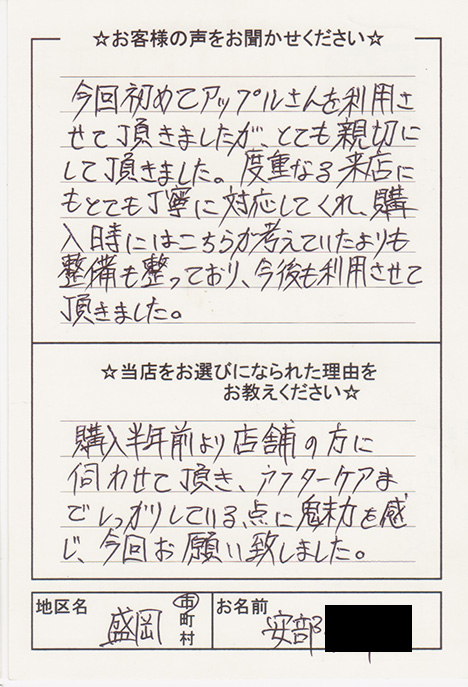 ☆お客様の声をお聞かせください☆
今回初めてアップルさんを利用さ
せて頂きましたが、とても親切に
して頂きました。度重なる来店に
もとても丁寧に対応してくれ、購
入時にはこちらが考えていたよりも
整備も整っており、今後も利用させて
頂きました。
☆当店をお選びになられた理由を
お教えください☆
購入半年前より店舗の方に
伺わせて頂き、アフターケアま
でしっかりしている、点に魅力を感
じ、今回お願い致しました。
地区名 盛岡 市町村 お名前 安部